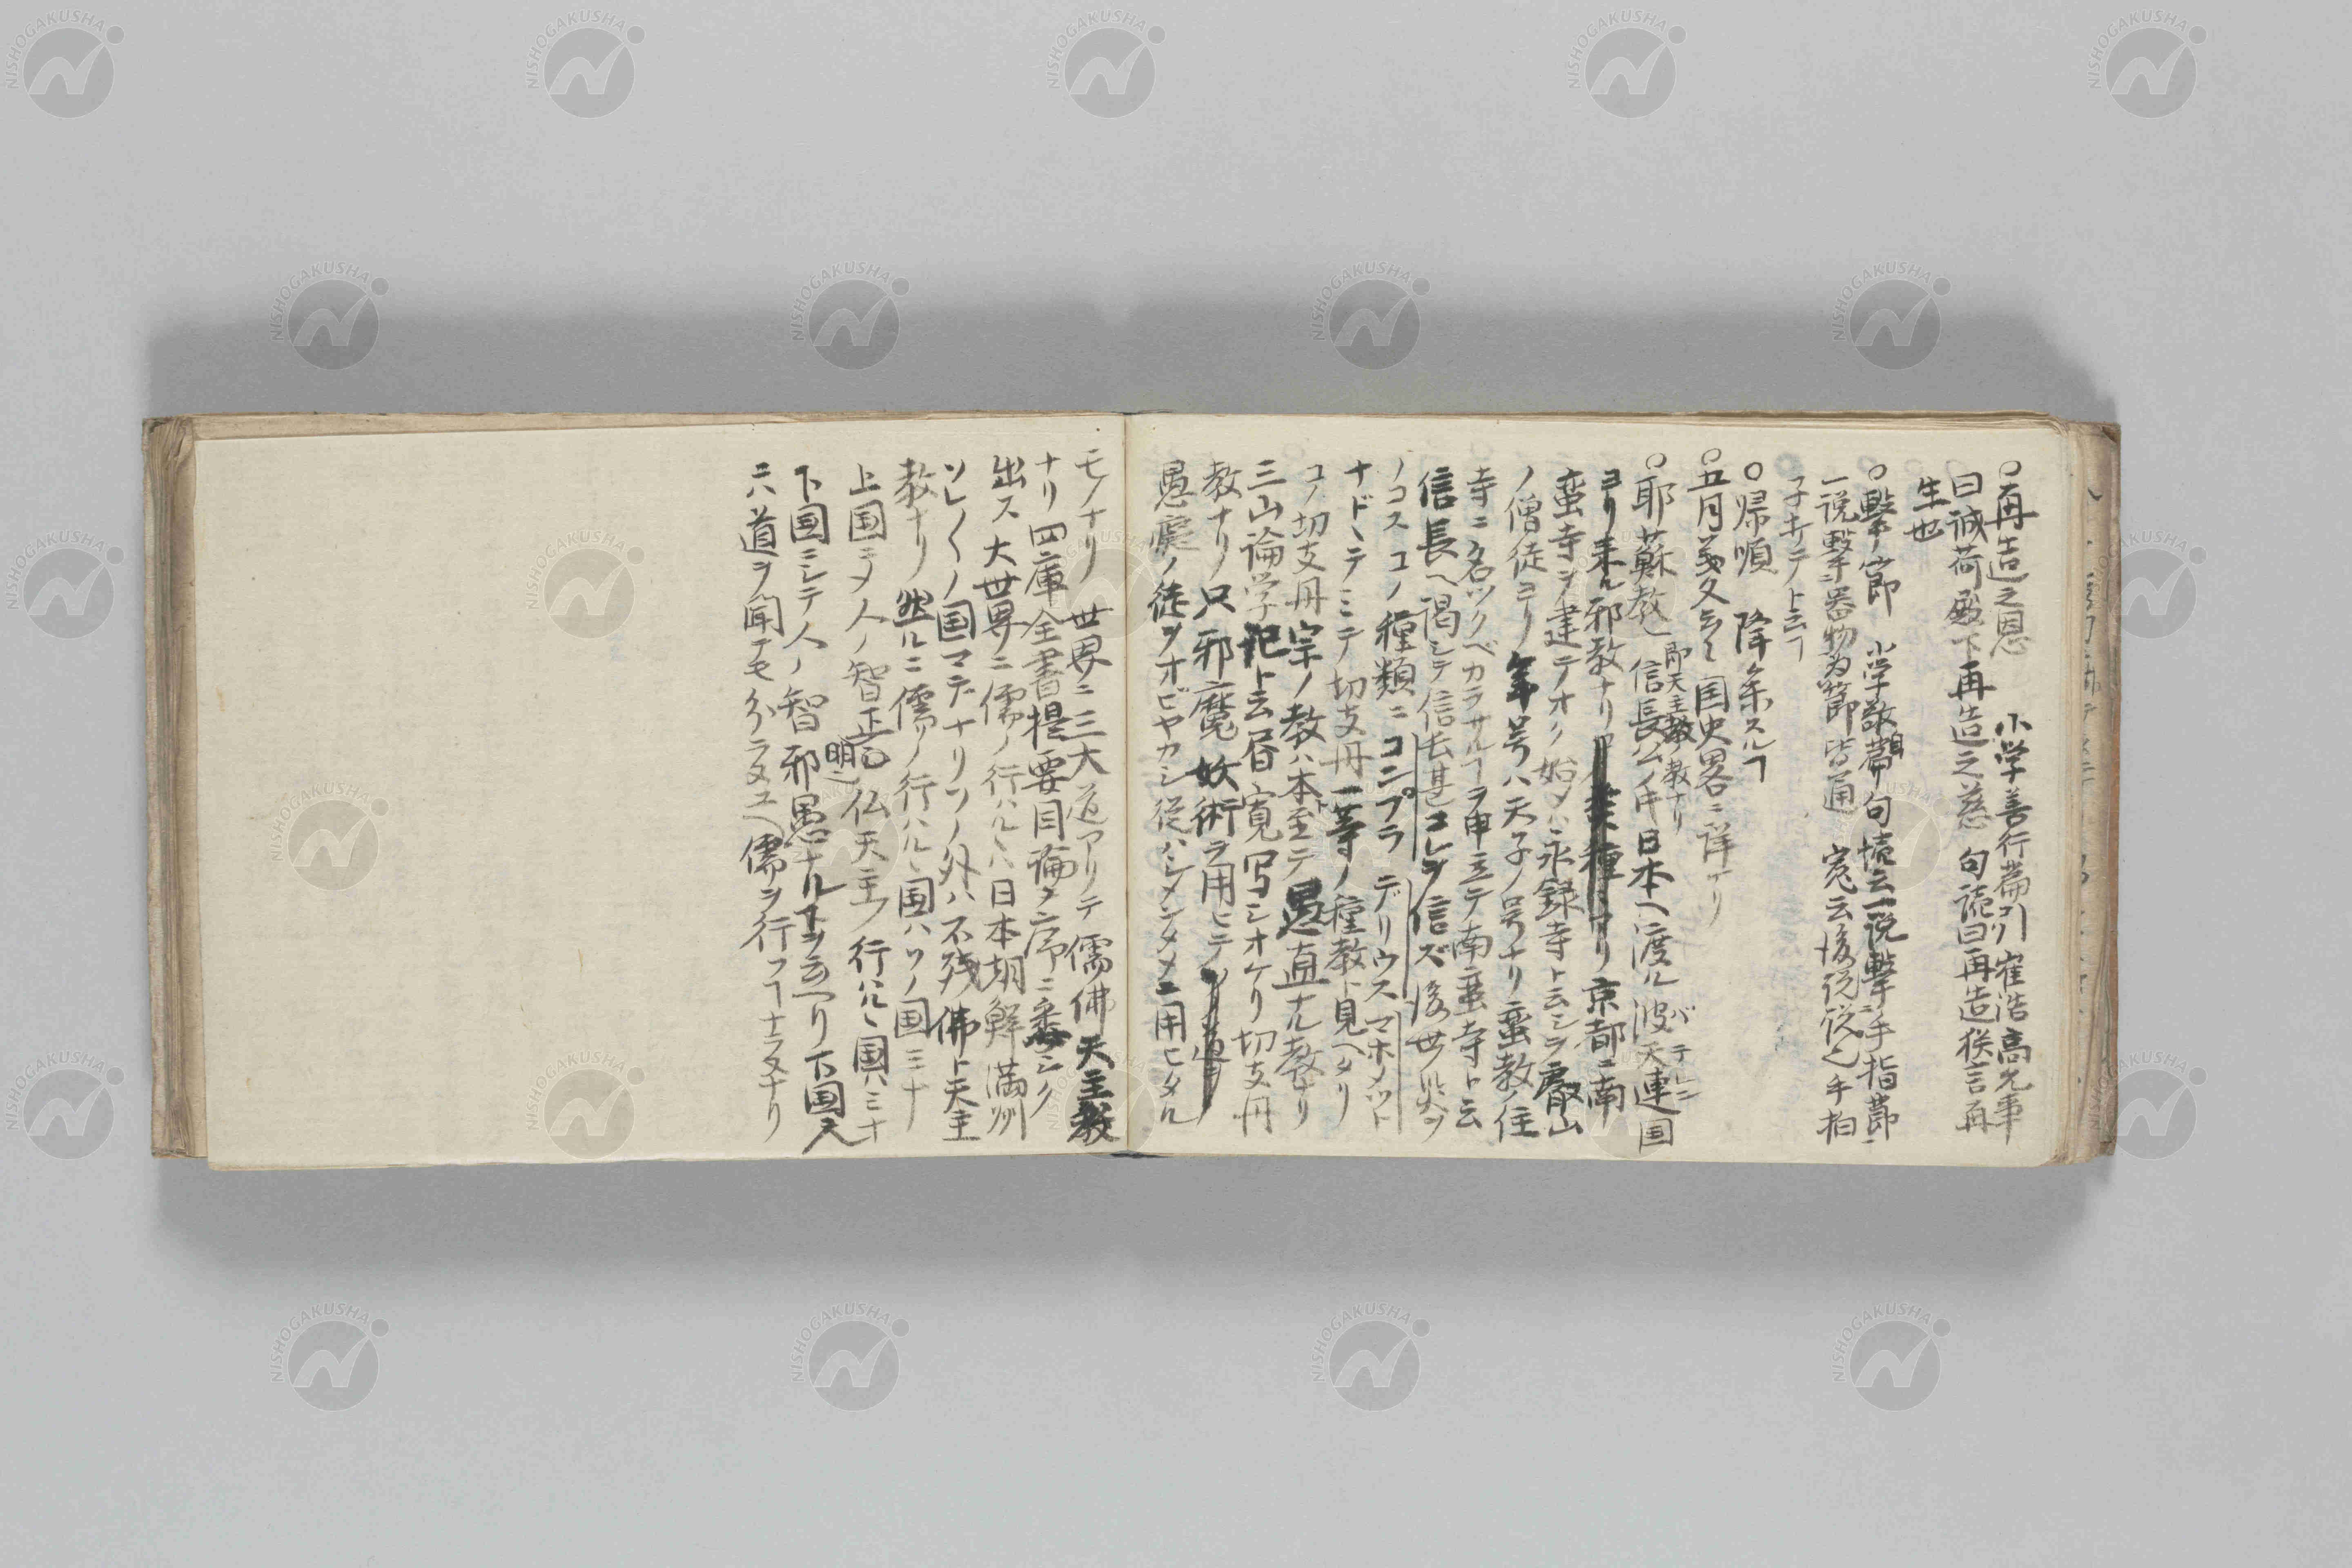 ○再造之恩 小学善行篇ニ引崔浩高允事
曰誠荷殿下再造之慈 句読曰再造猶言再
生也
○撃ノ節 小学敬身篇句読云一説撃ハ手指節
一説撃ハ器物為節皆通 寛云後説従之手拍
子ナリテト云ヿ
○帰順 降参スルヿ
○五月 云々国史畧ニ詳ナリ
○耶蘇教ハ 即天主教ノ教ナリ 信長公ノ時日本ヘ渡ル波天連国 バテレン
ヨリ来ル邪教ナリ 京都ニ南
蛮寺ヲ建テオク始メハ永録寺ト云シヲ叡山
ノ僧徒ヨリ年号ハ天子ノ号ナリ蛮教ノ住
寺ニ名ツクベカラサルヿヲ申立テ南蛮寺ト云
信長ヘ謁シテ信長甚コレヲ信ズ後世ノ災ヲ
ノコス コノ種類ニコンプラ デリウス マホメット
ナドヽテミテ切支丹一等ノ種教ト見ヘタリ
コノ切支丹宗ノ教ハ本ト至テ愚直ナル教ナリ
三山論学記ト云昏寛写シオケリ切支丹
教ナリ只邪魔妖術ヲ用ヒテ
愚癡ノ徒ヲオビヤカシ従ハシメンタメニ用ヒタル
モノナリ 世界ニ三大道アリテ儒佛天主教
ナリ 四庫全書提要目論ノ序ニ委シク
出ス 大世界ニ儒ノ行ハルヽハ日本朝鮮満洲
ソレ〳〵ノ国マデナリソノ外ハ不残佛ト天主
教ナリ 然ルニ儒ノ行ハルヽ国ハソノ国ミナ
上国ニメ人ノ智正明ニ仏天主ノ行ハルヽ国ハミナ
下国ニシテ人ノ智邪愚ナルヿヲ云ヘリ下国人
ニハ道ヲ聞テモ分ラヌユヘ儒ヲ行フヿナラヌナリ